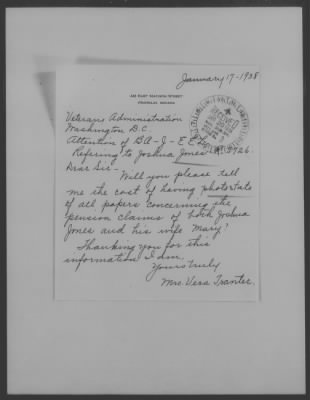 January 17-1938
East Madison Street
Franklin, Indiana
Veterans Administration
Washington D.C.
Attention of BA-J-EE
Refering to Joshua Jones
Dear Sir:-
Will you please tell
me the cost of having photostats
of all papers concerning the
pension claims of both Joshua
Jones and his wife Mary?
Thanking you for this
information I am.
Yours truly
Mrs. Vera Tranter.
RECEIVED